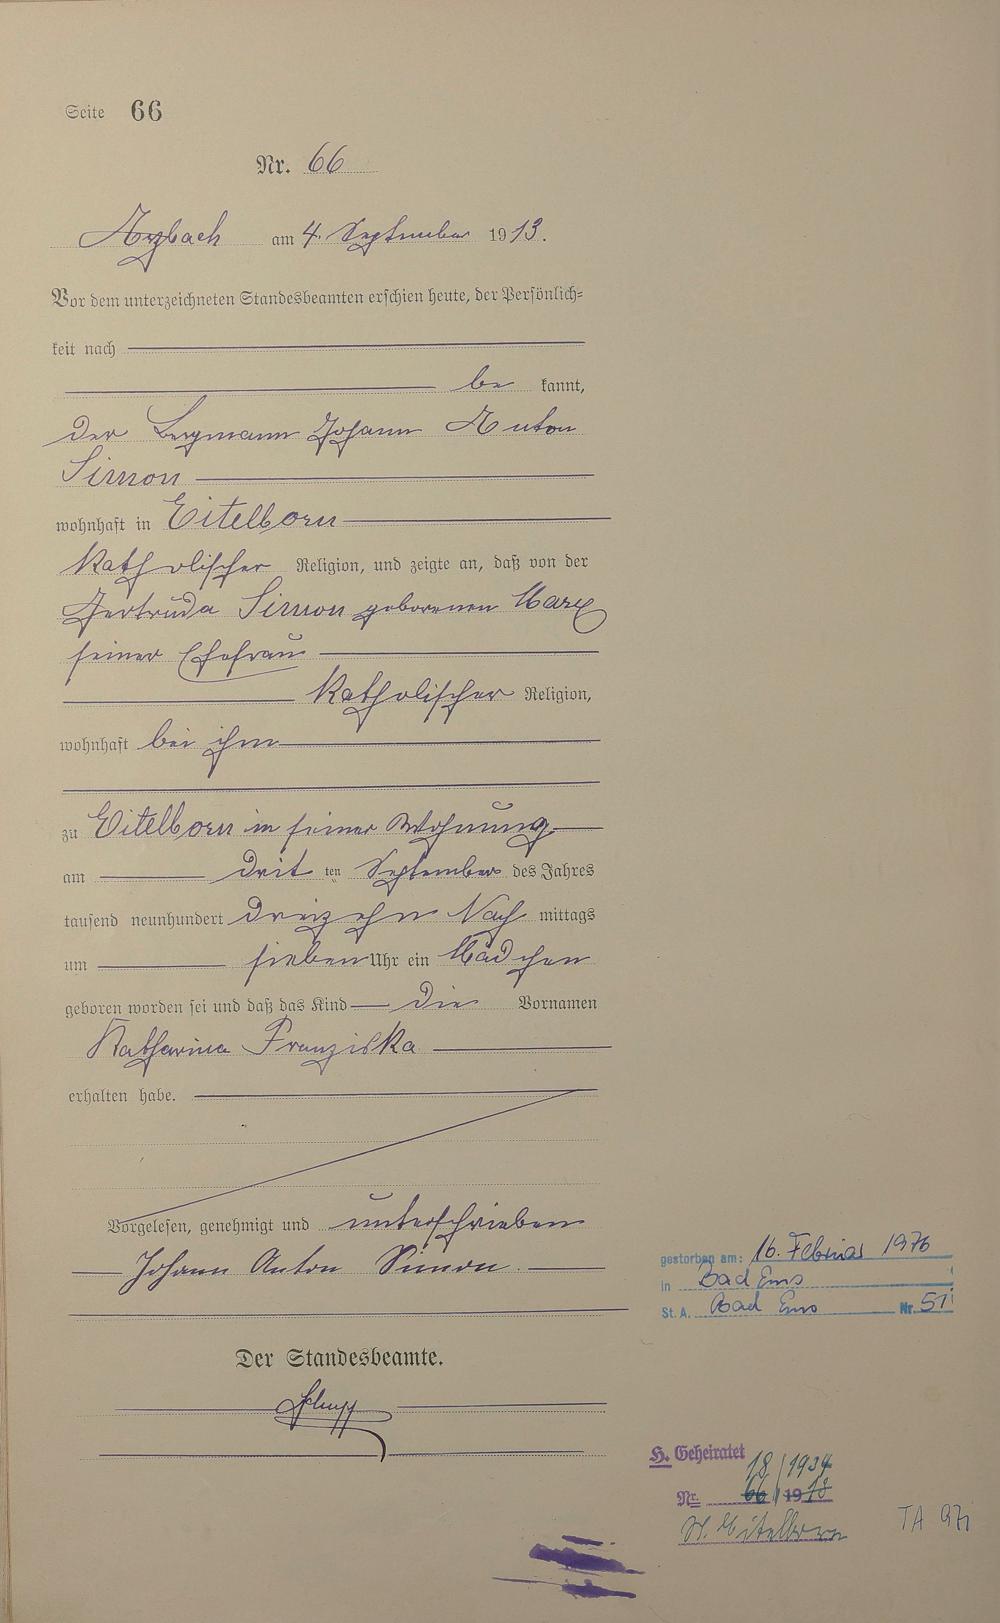 Seite 66
Nr. 66
Arzbach am 4. September 1913.
Vor dem unterzeichneten Standesbeamten erschien heute, der Persönlich-
keit nach
be kannt,
der Bergmann Johann Anton
Simon
wohnhaft in Eitelborn
katholischer Religion, und zeigte an, daß von der
Gertruda Simon geborenen Marx
seiner Ehefrau
katholischer Religion,
wohnhaft bei ihm
zu Eitelborn in seiner Wohnung
am dritten September des Jahres
tausend neunhundert dreizehn Nachmittags
um sieben Uhr ein Mädchen
geboren worden sei und daß das Kind die Vornamen
Katharina Franziska
erhalten habe.
Vorgelesen, genehmigt und unterschrieben
Johann Anton Simon
gestorben am: 16. Februar 1976
in Bad Ems
St. A. Bad Ems Nr. 51
Der Standesbeamte.
H. Geheiratet
18/1934
Nr. 66 1918
St. Eitelborn
TA